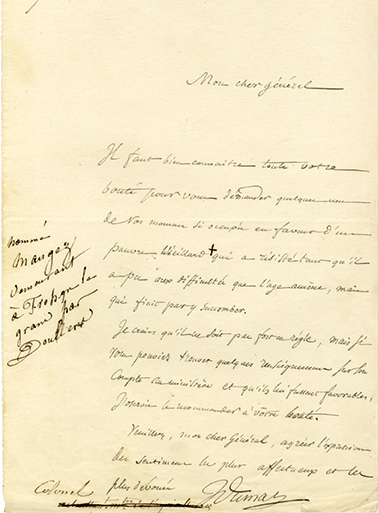 Mon cher général
Il faut bien connaître toute votre
bonté pour vous demander quelques uns
de vos momens si occupés en faveur d'un
pauvre Vieillard + qui a résisté tant qu'il
a pu aux difficultés que l'age amène, mais
qui finit par y sucomber.
Je crains qu'il ne soit pas fort en règle, mais si
vous pouviez trouver quelques renseignemens sur son
Compte au ministère et qu'ils lui fussent favorables,
J'oserais le recommander à votre bonté.
Veuillez, mon cher Général, agréer l'expression
des sentimens les plus affectueux et les
plus dévoués
Colonel
nommé
Mangez
demeurant
à
grand par